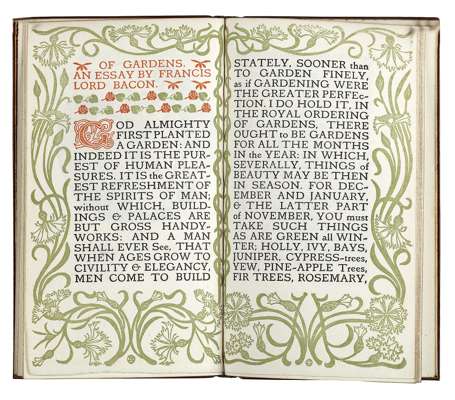 OF GARDENS.
AN ESSAY BY FRANCIS
LORD BACON.
GOD ALMIGHTY
FIRST PLANTED
A GARDEN: AND
INDEED IT IS THE PUR-
EST OF HUMAN PLEA-
SURES. IT IS the GREAT-
EST REFRESHMENT OF
THE SPIRITS OF MAN;
without WHICH, BUILD-
INGS & PALACES ARE
BUT GROSS HANDY-
WORKS: AND A MAN
SHALL EVER See, THAT
WHEN AGES GROW TO
CIVILITY & ELEGANCY,
MEN COME TO BUILD
STATELY, SOONER than
TO GARDEN FINELY,
as if GARDENING WERE
THE GREATER PERFEc-
tION. I DO HOLD IT, IN
THE ROYAL ORDERING
OF GARDENS, THERE
OUGHT to BE GARDENS
FOR ALL THE MONTHS
IN the YEAR: IN WHICH,
SEVERALLY, THINGS of
BEAUTY MAY BE THEN
IN SEASON. FOR DEC-
EMBER AND JANUARY,
& THE LATTER PART
of NOVEMBER, YOU must
TAKE SUCH THINGS
AS ARE GREEN all WIN-
TER; HOLLY, IVY, BAYS,
JUNIPER, CYPRESS-trees,
YEW, PINE-APPLE Trees,
FIR TREES, ROSEMARY,